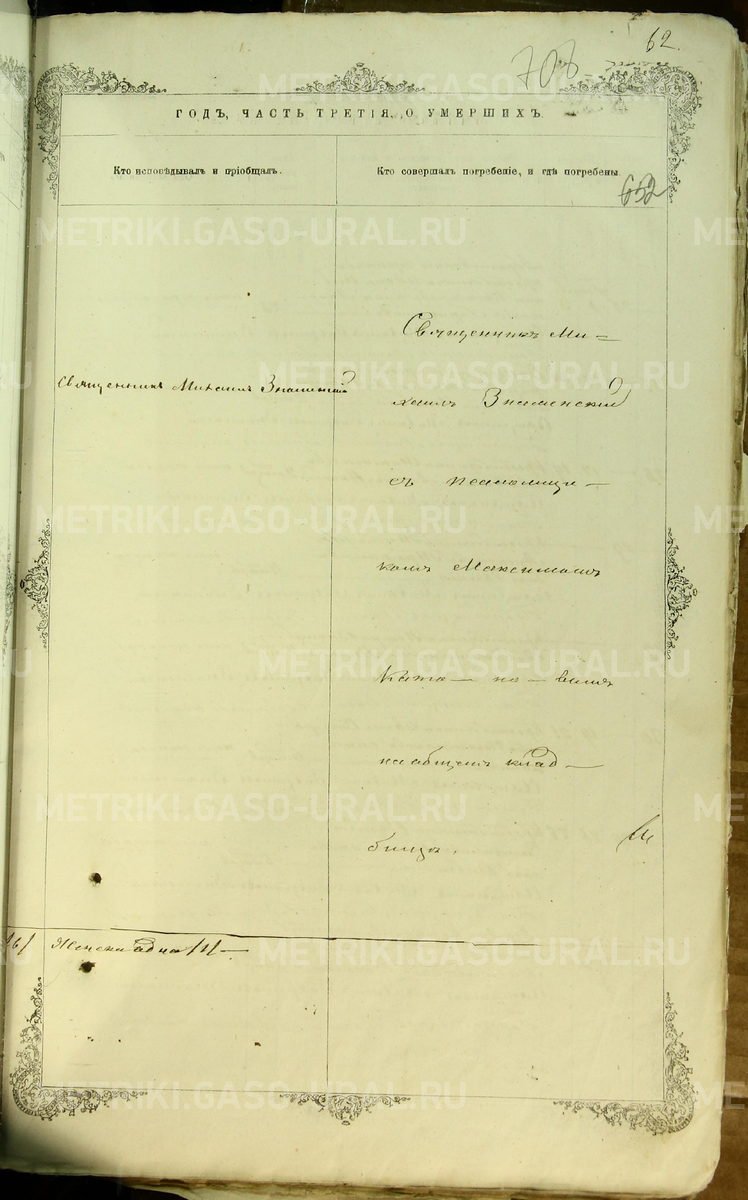 62.
708
ГОДЪ, ЧАСТЬ ТРЕТІЯ, О УМЕРШИХЪ.
Кто исповѣдывалъ и пріобщалъ.
Кто совершалъ погребеніе, и гдѣ погребены.
652
Священникъ Михаилъ Знаменскій
Священникъ Ми-
хаилъ Знаменскій
съ псаломщи-
комъ Максимомъ
на общемъ клад-
бищѣ.
Женска одна /1/
METRIKI.GASO-URAL.RU